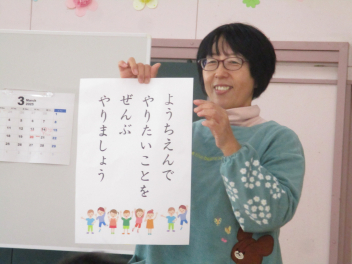 ようちえんで
やりたいことを
ぜんぶ
やりましょう
3
March